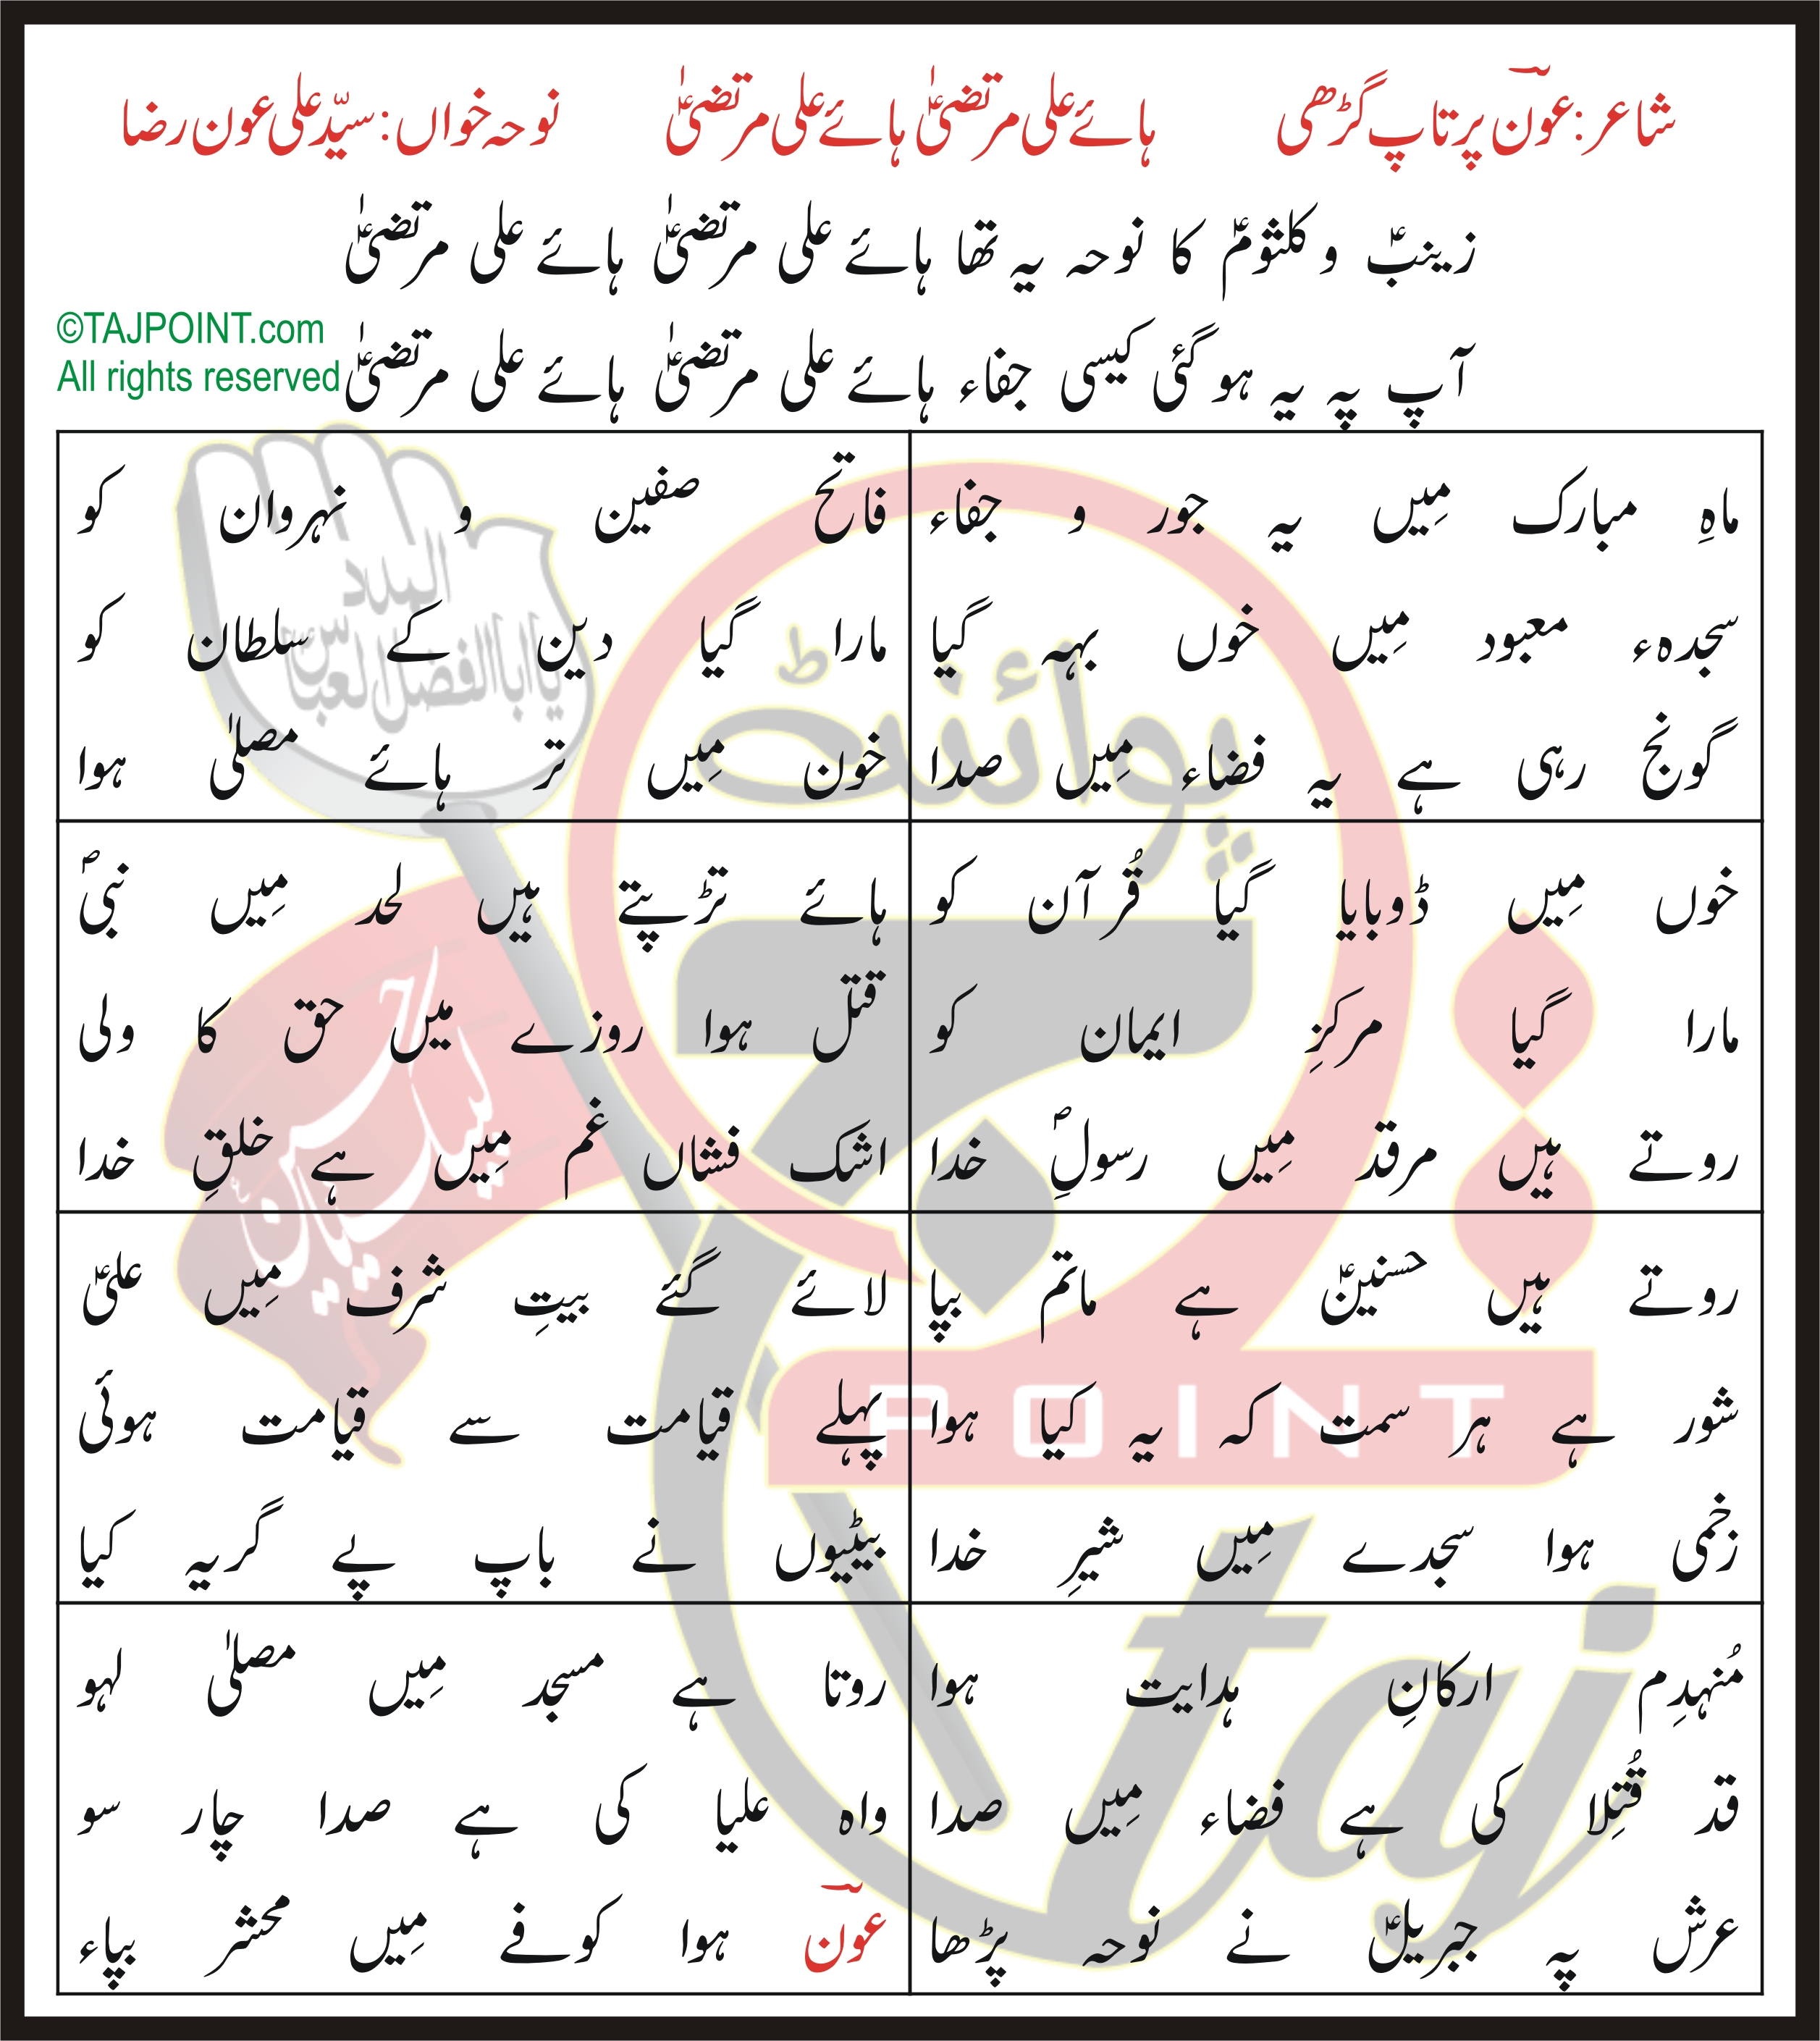 شاعر: عونؔ پرتاپ گڑھی ہائے علی مرتضیٰؑ ہائے علی مرتضیٰؑ نوحہ خواں: سیّد علی عون رضا
زینبؑ و کلثومؑ کا نوحہ یہ تھا ہائے علی مرتضیٰؑ ہائے علی مرتضیٰؑ
آپ پہ یہ ہو گئی کیسی جفاء ہائے علی مرتضیٰؑ ہائے علی مرتضیٰؑ
©TAJPOINT.com
All rights reserved
ماہِ مبارک مِیں یہ جور و جفاء
سجدہء معبود مِیں خوں بہہ گیا
گونج رہی ہے یہ فضاء مِیں صدا
فاتح صفین و نہروان کو
مارا گیا دین کے سلطان کو
خون مِیں تر ہائے مصلیٰ ہوا
خوں مِیں ڈوبایا گیا قُرآن کو
مارا گیا مرکزِ ایمان کو
روتے ہیں مرقد مِیں رسولِؐ خدا
ہائے تڑپتے ہیں لحد مِیں نبیؐ
قتل ہوا روزے میں حق کا ولی
اشک فشاں غم مِیں ہے خلقِ خدا
روتے ہیں حسنینؑ ہے ماتم بپا
شور ہے ہر سمت کہ یہ کیا ہوا
زخمی ہوا سجدے مِیں شیرِ خدا
لائے گئے بیتِ شرف مِیں علیؑ
پہلے قیامت سے قیامت ہوئی
بیٹیوں نے باپ پے گریہ کیا
مُنہدِم ارکانِ ہدایت ہوا
قد قُتِلا کی ہے فضاء مِیں صدا
عرش پہ جبریلؑ نے نوحہ پڑھا
روتا ہے مسجد مِیں مصلیٰ لہو
واہ علیا کی ہے صدا چار سو
عونؔ ہوا کوفے مِیں محشر بپاء
پوائنٹ
POINT
taj
یا اباالفضل العباس
لبیک یا حسین